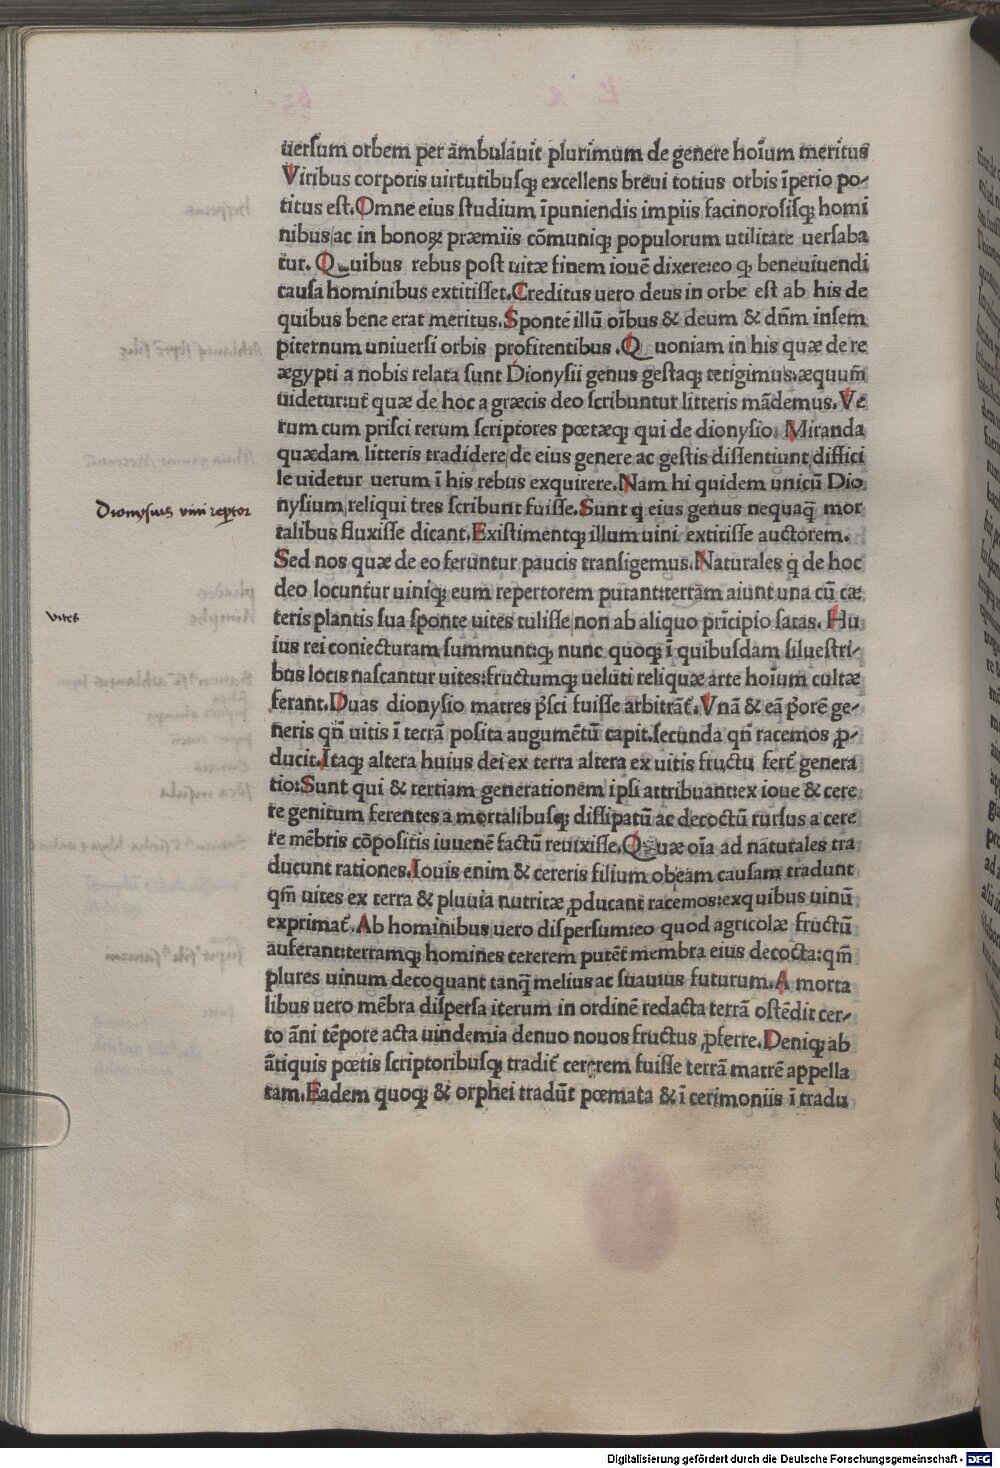 uersum orbem per ambulauit plurimum de genere hoīum meritus
Viribus corporis uirtutibusq; excellens breui totius orbis īperio po-
titus est. Omne eius studium īpuniendis impiis facinorosisq; homi
nibus ac in bonoꝝ præmiis cōmuniq; populorum utilitate uersaba
tur. Quibus rebus post uitæ finem iouē dixere: eo q; beneuiuendi
causa hominibus extitisset. Creditus uero deus in orbe est ab his de
quibus bene erat meritus. Sponte illū oībus & deum & dn̄m insem
piternum uniuersi orbis profitentibus. Quoniam in his quæ de re
ægypti a nobis relata sunt Dionysii genus gestaq; tetigimus: æquum̄
uidetur: ut quæ de hoc a græcis deo scribuntur litteris mādemus. Ve
rum cum prisci rerum scriptores poetæq; qui de dionysio. Miranda
quædam litteris tradidere de eius genere ac gestis dissentiunt diffici
le uidetur uerum ī his rebus exquirere. Nam hi quidem unicū Dio
nysium reliqui tres scribunt fuisse. Sunt q eius genus nequaq̄ mor
talibus fluxisse dicant. Existimentq; illum uini extitisse auctorem.
Sed nos quæ de eo feruntur paucis transigemus. Naturales q de hoc
deo locuntur uiniq; eum repertorem putant: terram aiunt una cū cæ
teris plantis sua sponte uites tulisse non ab aliquo prīcipio satas. Hu
ius rei coniecturam summuntq; nunc quoq; ī quibusdam siluestri-
bus locis nascantur uites: fructumq; ueluti reliquæ arte hoīum cultæ
ferant. Duas dionysio matres p̄sci fuisse arbitrāt̄. Vnā & eā p̄orē ge-
neris qn̄ uitis ī terrā posita augumētū capit. secunda qn̄ racemos ꝓ-
ducit. Itaq; altera huius dei ex terra altera ex uitis fructu fert̄ genera
tio: Sunt qui & tertiam generationem ipsi attribuant: ex ioue & cere
re genitum ferentes a mortalibusq; dissipatū ac decoctū rursus a cere
re mēbris cōpositis iuuenē factū reuixisse. Quæ oīa ad naturales tra
ducunt rationes. Iouis enim & cereris filium obeam causam tradunt
qm̄ uites ex terra & pluuia nutritæ ꝓducant racemos: exquibus uinū
exprimat̄. Ab hominibus uero dispersum: eo quod agricolæ fructū
auferant: terramq; homines cererem putēt membra eius decocta: qm̄
plures uinum decoquant tanq̄ melius ac suauius futurum. A morta
libus uero mēbra dispersa iterum in ordinē redacta terrā ostēdit cer-
to āni tēpore acta uindemia denuo nouos fructus ꝓferre. Deniq; ab
ātiquis poetis scriptoribusq; tradit̄ cererem fuisse terrā matrē appella
tam. Eadem quoq; & orphei tradūt poemata & ī cerimoniis ī tradu
Dionysius vini reptor
vites
Digitalisierung gefördert durch die Deutsche Forschungsgemeinschaft - DFG